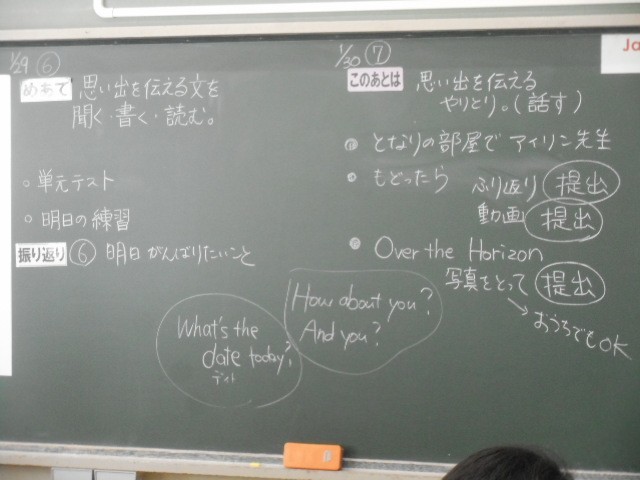 1/29 ⑥
めあて 思い出を伝える文を
聞く・書く・読む。
○ 単元テスト
○ 明日の練習
振り返り ⑥ 明日がんばりたいこと
1/30 ⑦
このあとは 思い出を伝える
やりとり。(話す)
● となりの部屋で アイリン先生
● もどったら ふり返り 提出
動画 提出
● Over the Horizon
写真をとって 提出
→ おうちでもOK
What's the
date today?
デイト
How about you?
And you?
Ja